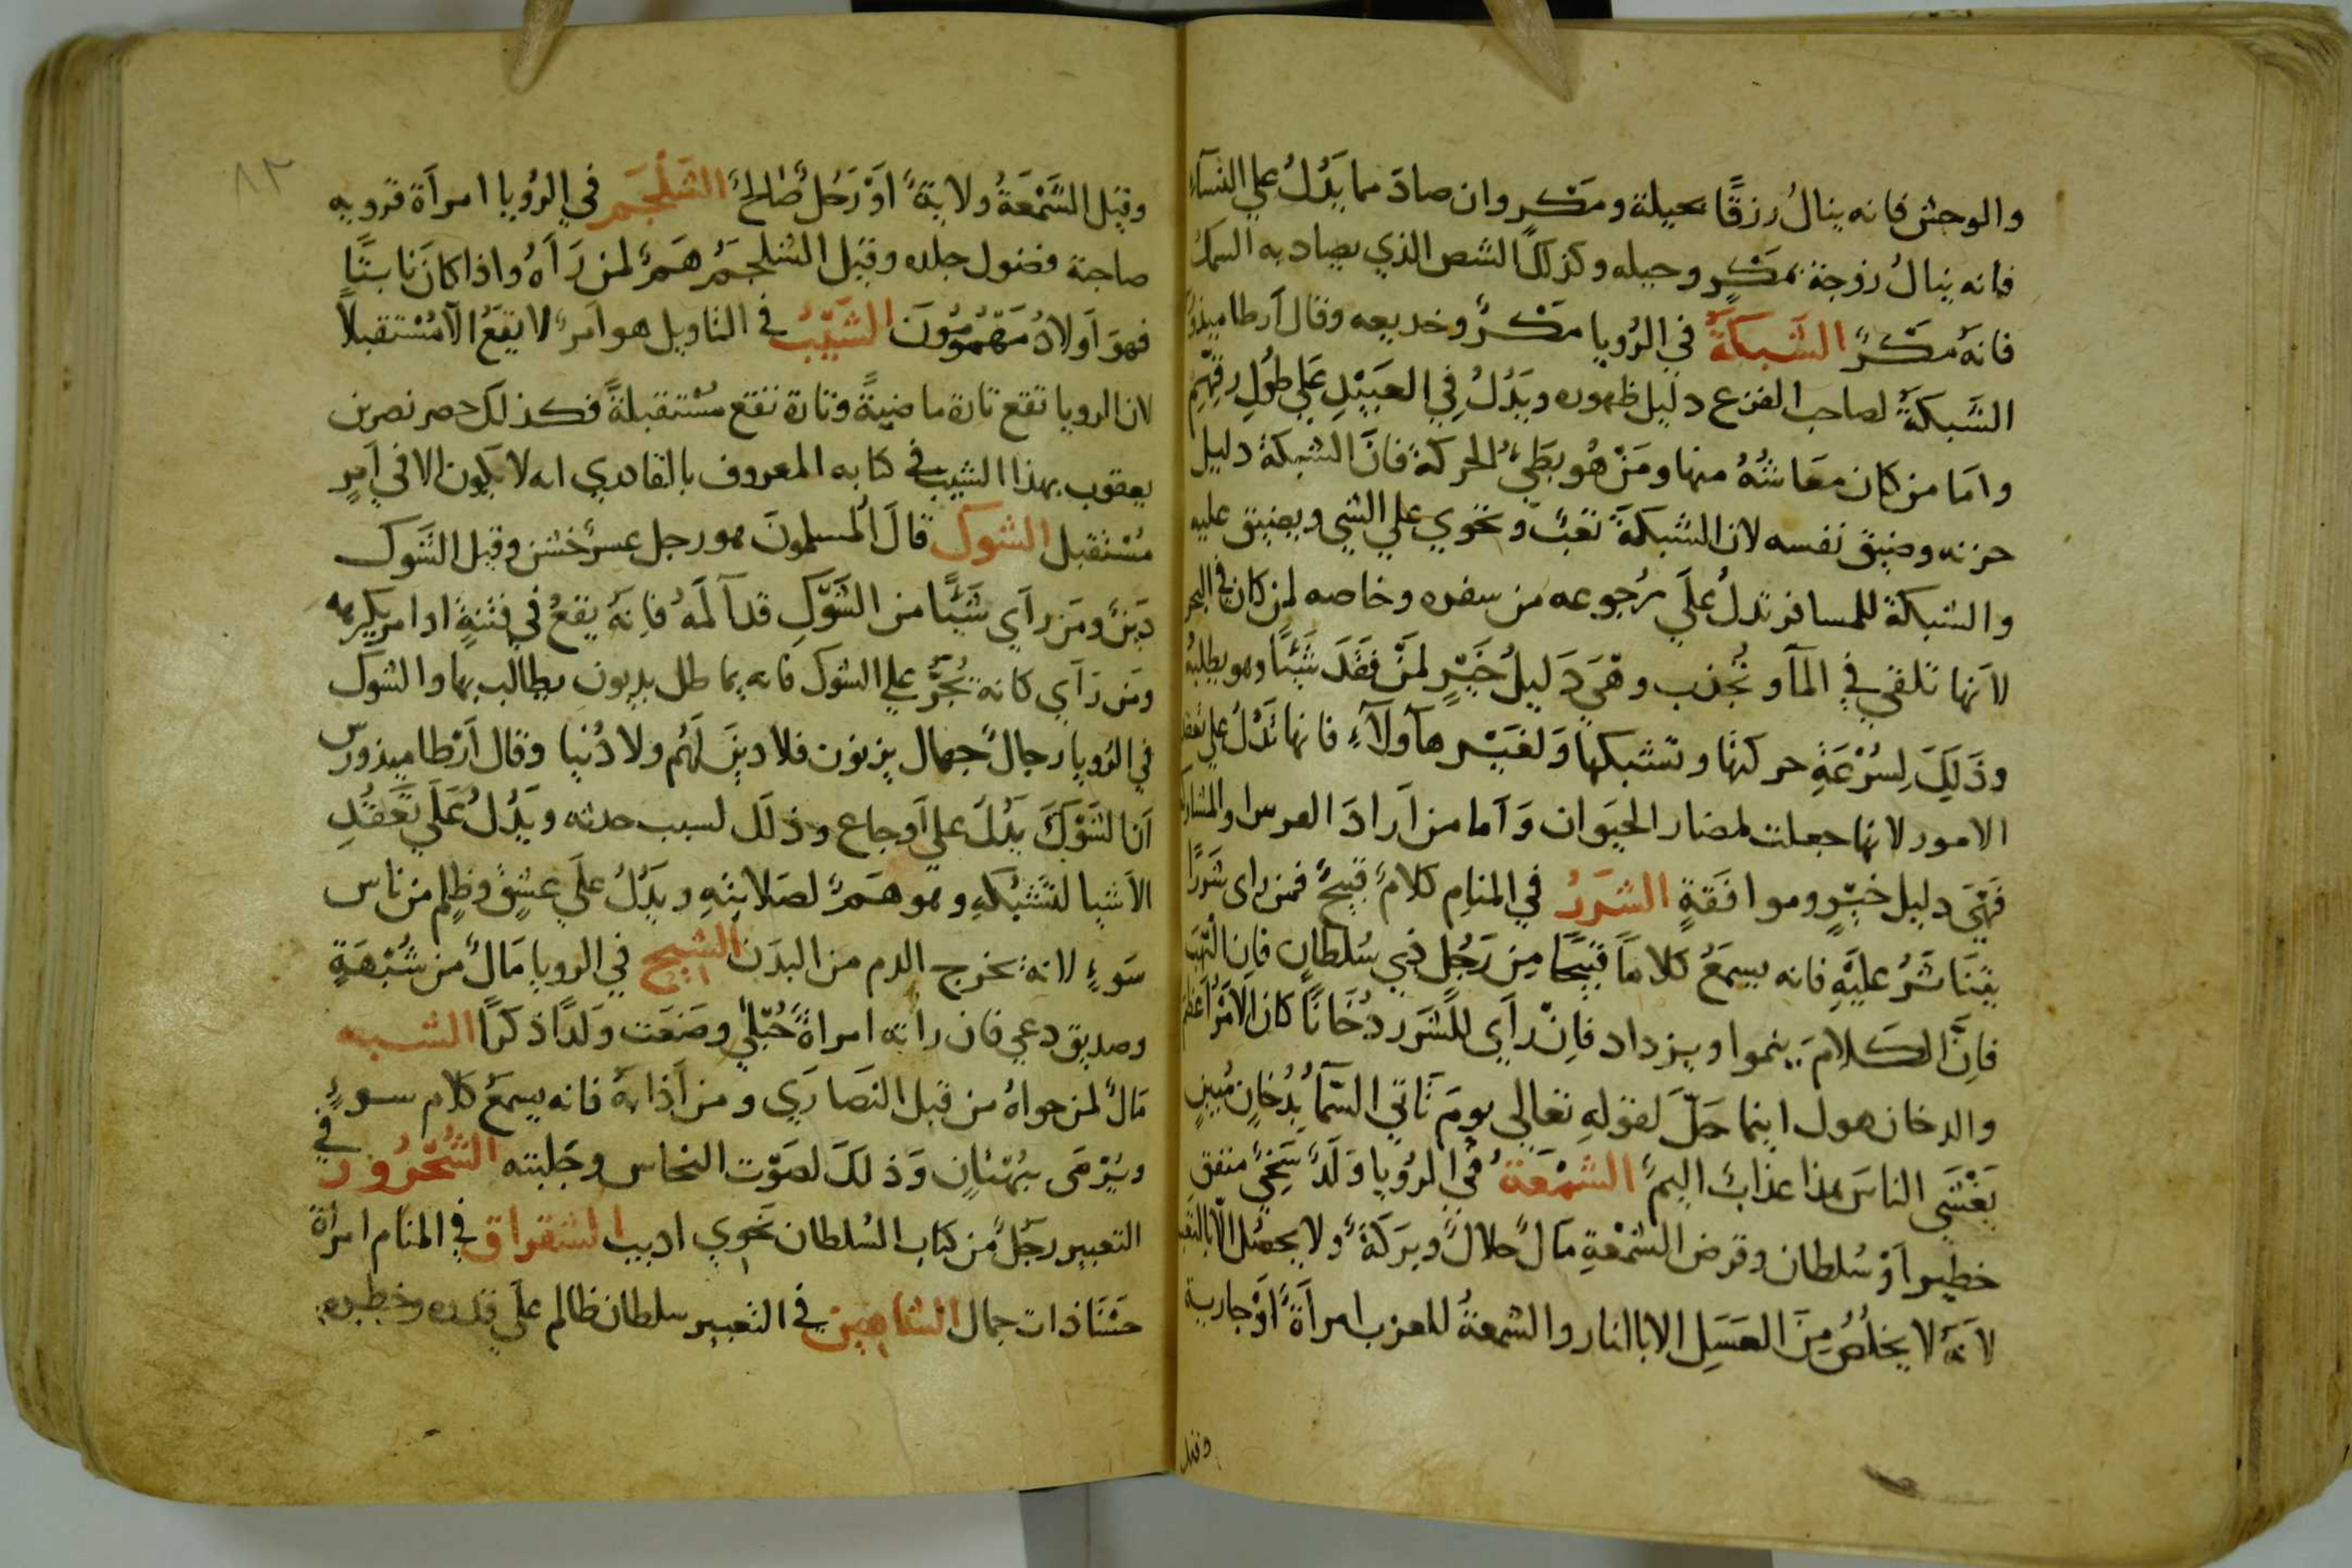 والوحش فانه ينالُ رزقًا بحيلة ومَكرٍ وان صادَ مما يَدُلُ علي النسآءِ
فانه ينالُ زوجة بمَكرٍ وحيله وكذلك الشص الذي يصاد به السمك
فانهُ مَكرٌ الشَبكةُ في الرُويا مَكرٌ وخديعه وقال ارطاميذورس
الشَبكةُ لصاحب الفزع دليل ظهوره ويَدُلُ في العَبيْدِ عَلي طُولِ رقّهِم
وامَا من كان معَاشهُ منها ومَنْ هُو بطَيُ الحركة فانَّ الشبكة دليل
حزنه وضيق نفسه لان الشبكةَ تعَبٌ وتحوي علي الشي ويضيق عليه
والشبكة للمسافر تدلُ علَي رُجوعه من سفره وخاصه لمن كان في البحر
لانها تلقي في المآ وتُجذب وهَيَ دَليلُ خَيْرٍ لمَنْ فقَدَ شَيْئًا وهو يطلبهُ
وذَلِكَ لِسُرْعَةِ حركتها وتشبكها وَلغَيْر هآولآءِ فانها تَدُلُ علي تعقد
الامور لانها جعلت لمضار الحيَوان وَامَا من ارَادَ العرس او المشاركة
فَهْيَ دليل خيْرٍ وموافقَةٍ الشَرَرُ في المنامِ كلامٌ قبيحٌ فمن راى شَررًا
يَتنَاشَرُ عليَهِ فانه يسمَعُ كلامًا قبيحًا مِن رَجُلٍ ذي سُلطانٍ فان التهَب
فاِنَّ الكلامَ ينموا ويزداد فاِنْ رَاَي للشَرر دُخَانًا كان الامَرُ اعظم
والدخان هول اينما حَلّ لقولهِ تعالي يومَ تَاتي السَمآُ بِدُخانٍ مُبينٍ
يَغْشَي الناسَ هذا عذابٌ اليمٌ الشَمْعَةُ في الرُويا وَلَدٌ سَخيٌ منفق
خطير اَوْ سُلطان وقرض الشمْعةِ مَالٌ حلالٌ وبرَكَةٌ ولا يحصُل الا بالتعب
لانهُ لا يخلُصُ مِنَ العَسَلِ الا بالنار والشمعةُ للعزب امراَةٌ اوْ جارية
وقيل
٨٣
وقيل الشَمْعَةُ ولايةٌ اَوْ رَجُلٌ صَالحٌ الشَلْجَم في الرُويا امراَة قرويه
صاحبة فضول جلده وقيل الشلجمُ هَمٌ لمن رَآهُ واذا كانَ نابتًا
فهوَ اَولادٌ مَهْمُومُونَ الشَيْبُ في التاويل هو اَمرٌ لا يقعُ الا مُسْتقبلاً
لان الرويا تقع تارة ماضيةً وتارة تقع مسْتقبلةً فكذلك حصر نصر بن
يعقوب بهذا الشيب في كتابه المعروف بالقادري انه لا يكون الا في اَمرٍ
مُسْتقبل الشوك قالَ المُسلمونَ هو رجل عسرٌ خشن وقيل الشَوك
دَينٌ ومَن رآَي شَيْئًا من الشَوْكِ قد آلمَهُ فاِنهُ يقعُ في فتنةٍ او امر يكرهه
ومَن رَاَي كانهُ يُجَرُ علي الشوك فانه يماطل بديون يطالب بها والشوك
في الرُويا رجالٌ جهال يزنون فلا دينَ لَهُم ولا دُنيا وقال اَرْطاميذورس
اَن الشَوْكَ يَدُلُ علي اَوجاع وذلَك لسبب حدته ويَدُلُ عَلَي تَعَقُّدِ
الاَشيا لتشبُكهِ وهو هَمٌ لصَلابتهِ ويَدُلُ علَي عِشقٍ وظلم من ناس
سَوءٍ لانهُ يخرج الدم من البدَن الشيح في الرويا مَالٌ من شُبْهَةٍ
وصديق دعي فان راَته امراةٌ حُبْلَي وضَعَت ولَدًا ذكرًا الشبه
مَالٌ لمن حواهُ من قبل النصَارَي ومن اَذابهُ فانه يسمَعُ كلام سوءٍ
ويُرْمَى ببُهْتانٍ وَذلكَ لصَوْت النحاس وجَلبته الشُحْرُورُ في
التعبير رجُلٌ من كتاب السُلطان نَحوي اديب الشقراق في المنام امراَة
حَسَنَا ذات جمال الشاهين في التعبير سلطان ظالم علَي قدره وخطره